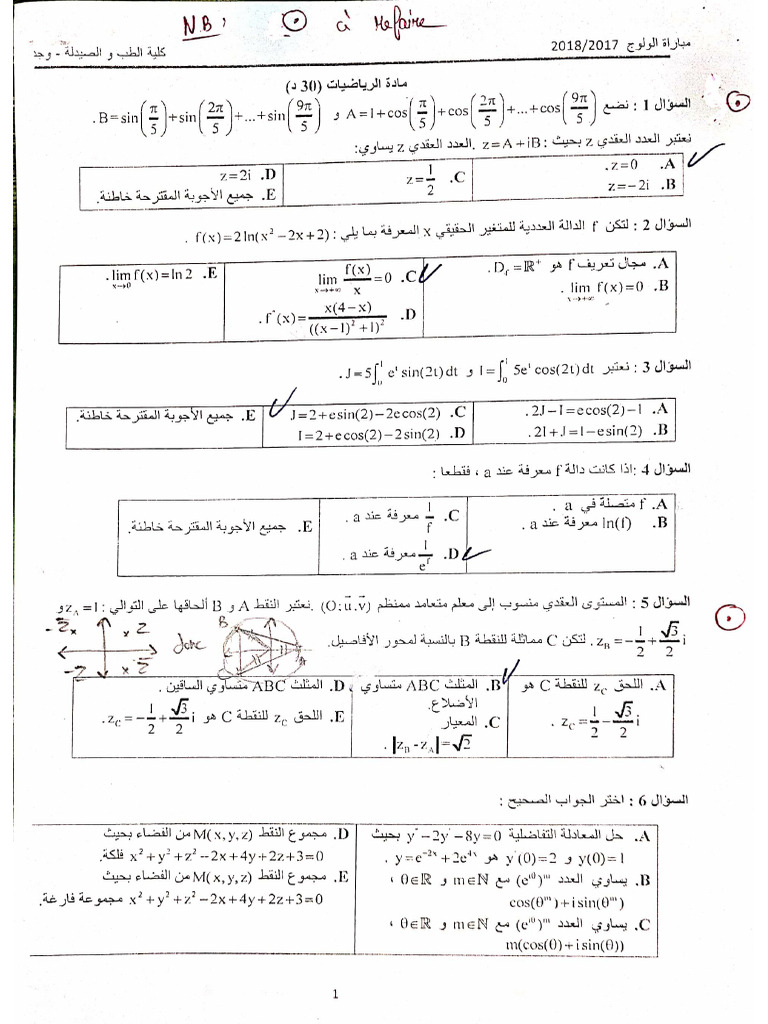 NB: ⊙ à Refaire
مباراة الولوج 2018/2017
كلية الطب و الصيدلة - وجد
مادة الرياضيات (30 د)
السؤال 1 : نضع A=1+cos(π/5)+cos(2π/5)+...+cos(9π/5) و B=sin(π/5)+sin(2π/5)+...+sin(9π/5) .
نعتبر العدد العقدي z بحيث : z=A+iB .العدد العقدي z يساوي:
A. z=0.
B. z=-2i
C. z=1/2
D. z=2i
E. جميع الأجوبة المقترحة خاطئة.
السؤال 2 : لتكن f الدالة العددية للمتغير الحقيقي x المعرفة بما يلي : f(x)=2ln(x²-2x+2) .
A. مجال تعريف f هو D_f=ℝ⁺ .
B. lim_{x→+∞} f(x)=0 .
C. lim_{x→+∞} f(x)/x=0
D. f''(x)=x(4-x)/((x-1)²+1)² .
E. lim_{x→0} f(x)=ln2 .
السؤال 3 : نعتبر I=∫₀¹ 5eᵗcos(2t)dt و J=5∫₀¹ eᵗsin(2t)dt .
A. 2J-I=ecos(2)-1 .
B. 2I+J=1-esin(2) .
C. J=2+esin(2)-2ecos(2)
D. I=2+ecos(2)-2sin(2)
E. جميع الأجوبة المقترحة خاطئة.
السؤال 4 :إذا كانت دالة f معرفة عند a ، فقطعا :
A. f متصلة في a .
B. ln(f) معرفة عند a .
C. 1/f معرفة عند a .
D. 1/e^f معرفة عند a .
E. جميع الأجوبة المقترحة خاطئة.
السؤال 5 : المستوى العقدي منسوب إلى معلم متعامد ممنظم (O;u⃗.v⃗) .نعتبر النقط A و B ألحاقها على التوالي : z_A=1 و
z_B=-1/2+√3/2 i . لتكن C مماثلة للنقطة B بالنسبة لمحور الأفاصيل.
-z̄ x
x z
-z
x z̄
donc
B
A
A. اللحق z_C للنقطة C هو
z_C=1/2-√3/2 i .
B. المثلث ABC متساوي
الأضلاع.
C. المعيار
|z_B-z_A|=√2 .
D. المثلث ABC متساوي الساقين .
E. اللحق z_C للنقطة C هو z_C=-1/2+√3/2 i .
السؤال 6 : اختر الجواب الصحيح :
A. حل المعادلة التفاضلية y''-2y'-8y=0 بحيث
y(0)=1 و y'(0)=2 هو y=e^{-2x}+2e^{4x} .
B. يساوي العدد (e^{iθ})^m مع m∈ℕ و θ∈ℝ ،
cos(θ^m)+isin(θ^m)
C. يساوي العدد (e^{iθ})^m مع m∈ℕ و θ∈ℝ ،
m(cos(θ)+isin(θ))
D. مجموع النقط M(x,y,z) من الفضاء بحيث
x²+y²+z²-2x+4y+2z+3=0 فلكة.
E. مجموع النقط M(x,y,z) من الفضاء بحيث
x²+y²+z²-2x+4y+2z+3=0 مجموعة فارغة.
1